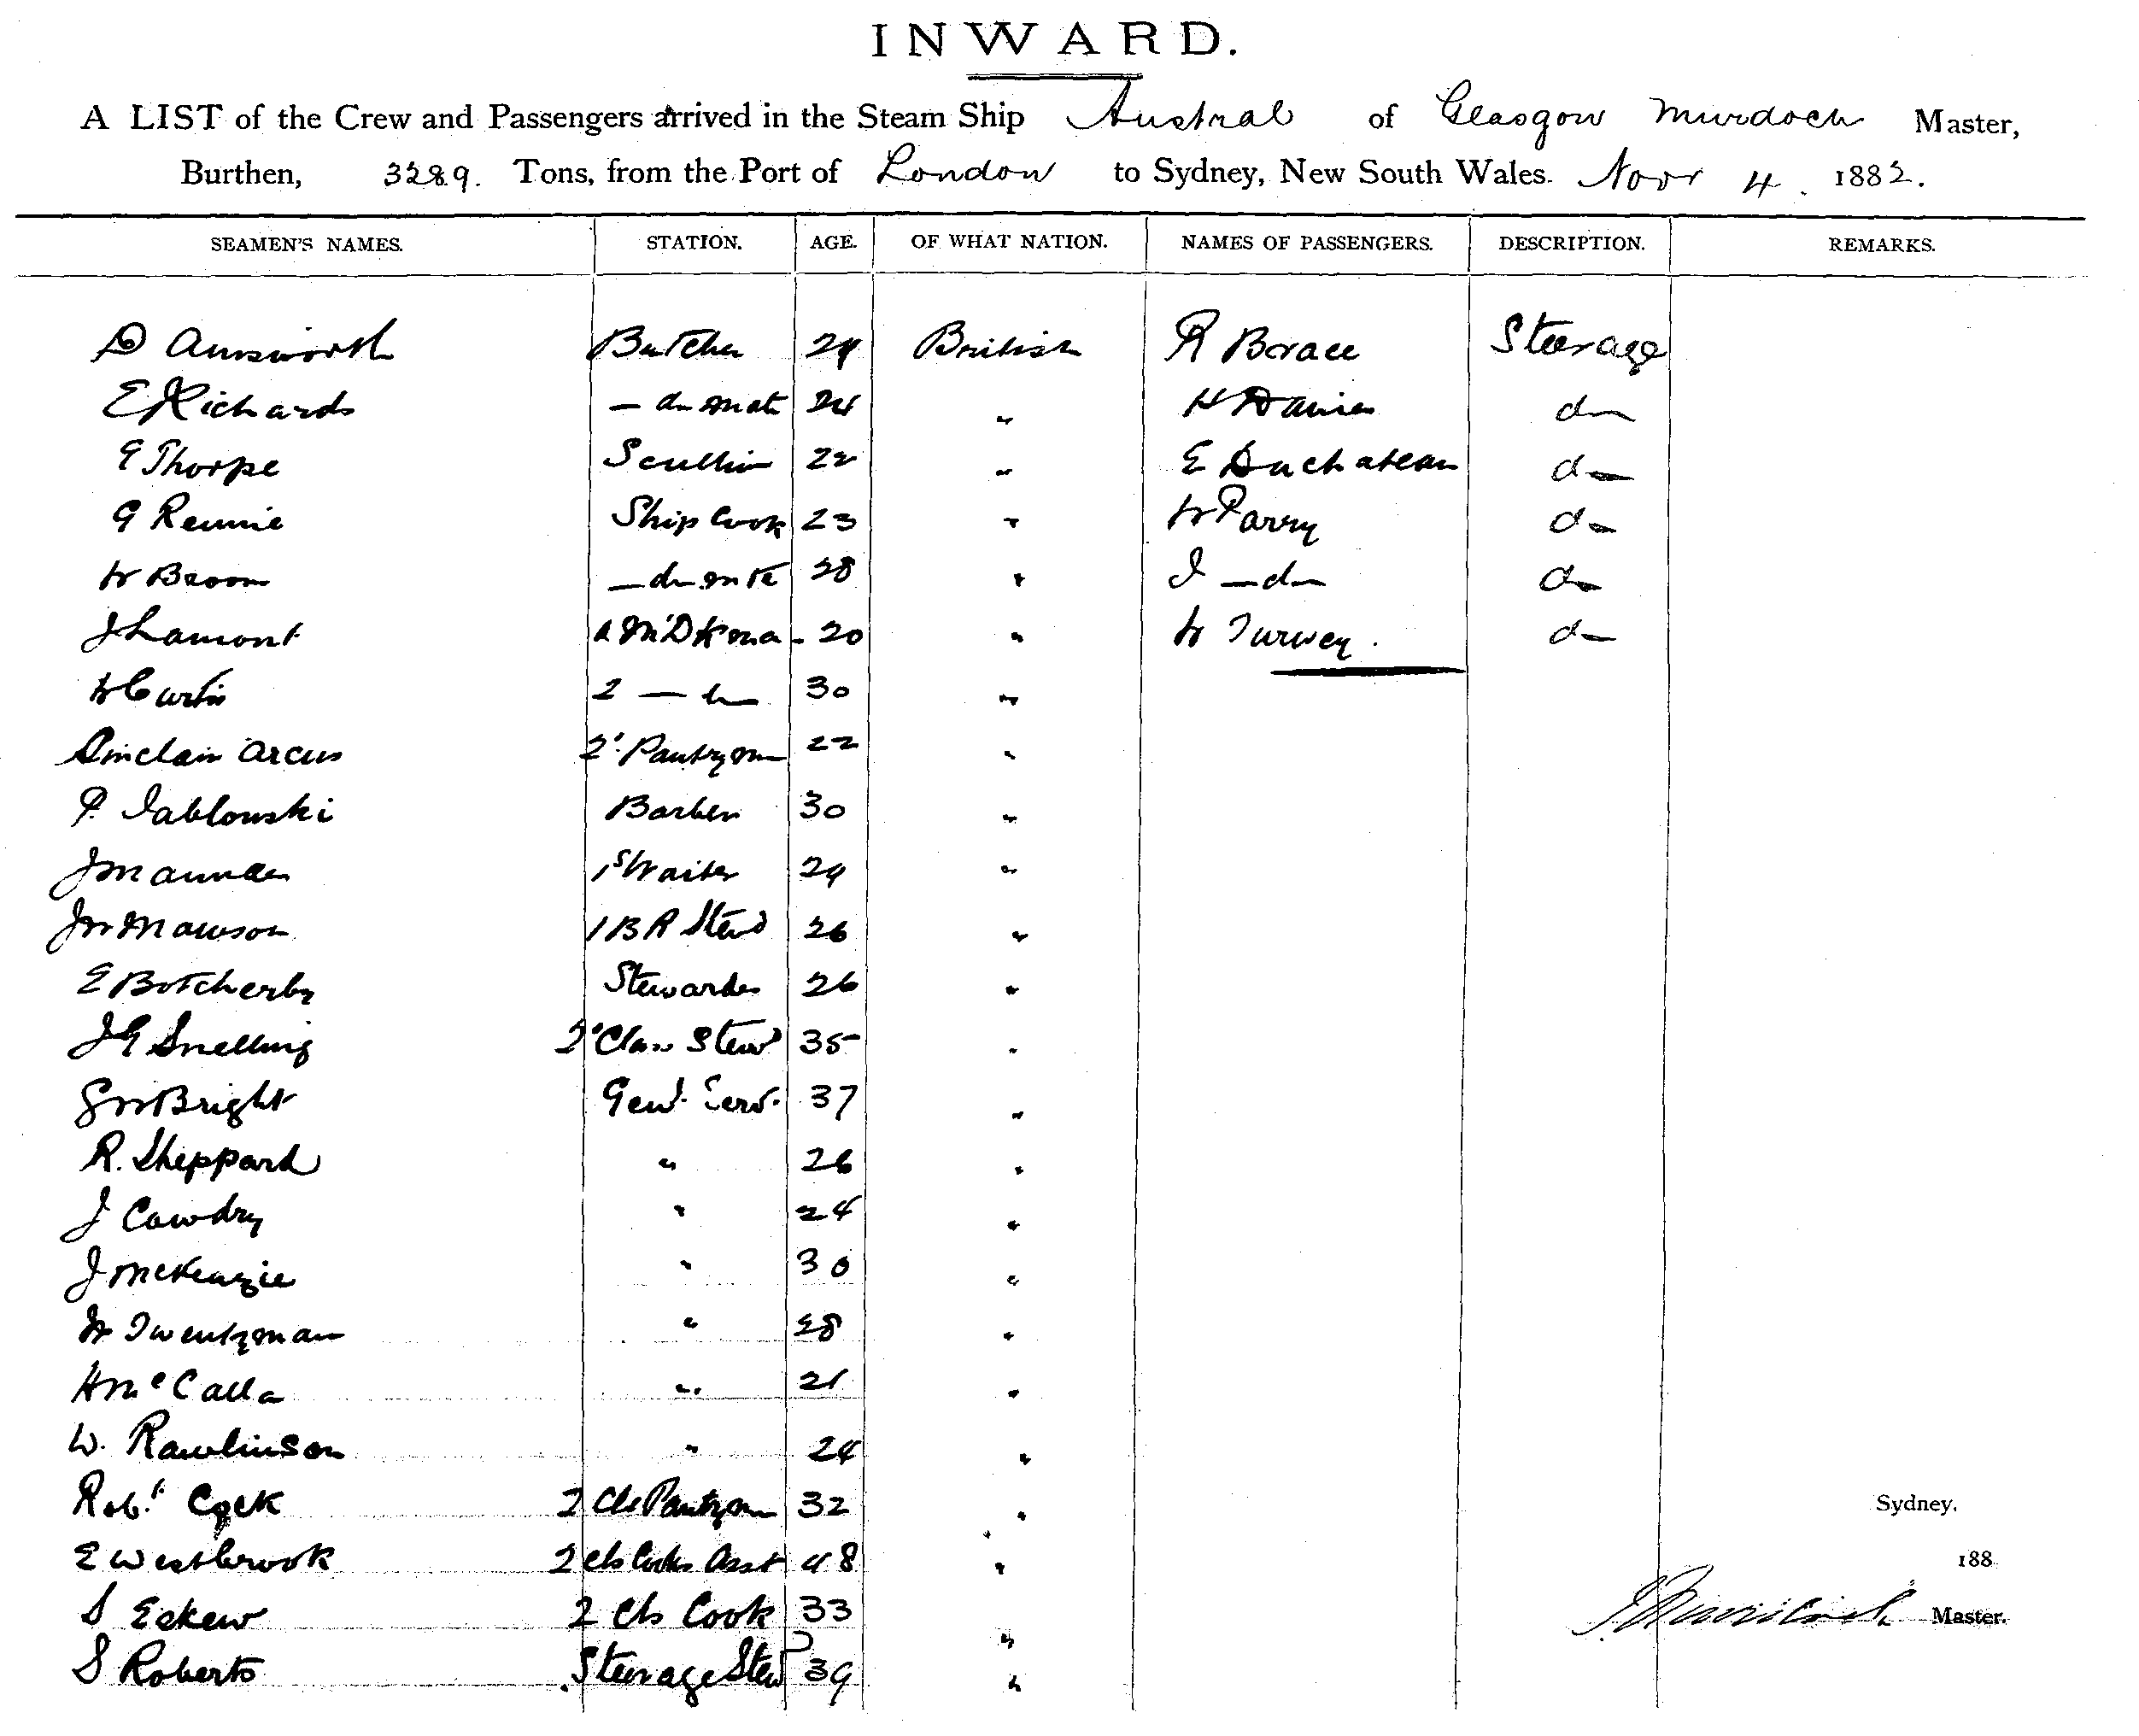 INWARD.
A LIST of the Crew and Passengers arrived in the Steam Ship Austral of Glasgow Murdoch Master,
Burthen, 3289. Tons, from the Port of London to Sydney, New South Wales. Novr 4. 1882.
SEAMEN'S NAMES. STATION. AGE. OF WHAT NATION. NAMES OF PASSENGERS. DESCRIPTION. REMARKS.
D Ainsworth Butcher 29 British R Brace Steerage
E Richards — do mate 24 " H Davies do
E Thorpe Scullion 22 " E Duchateau do
G Rennie Ship Cook 23 " W Parry do
W Broom — do mate 28 " I — do do
J Lamont 20 " W Turvey. do
W Curtis 2 — do 30 "
Sinclair Arcus 2' Pantrym 22 "
P. Jablouski Barber 30 "
J Maunder 1st Waiter 29 "
JW Mawson 1 BR Stewd 26 "
E Botcherby Stewardes 26 "
JG Snelling 2' Class Stewd 35 "
GW Bright Genl. Serv. 37 "
R. Sheppard " 26 "
J Cowdry " 24 "
J McKenzie " 30 "
W Twentyman " 28 "
H McCalla " 21 "
W. Rawlinson " 24 "
Robt Cock 2 Cls Pantrym 32 "
Sydney,
E Westbrook 2 cls Cooks Asst 48 "
188
S Eckew 2 Cls Cook 33 "
J Murdoch Master.
S Roberts Steerage Stewd 39 "